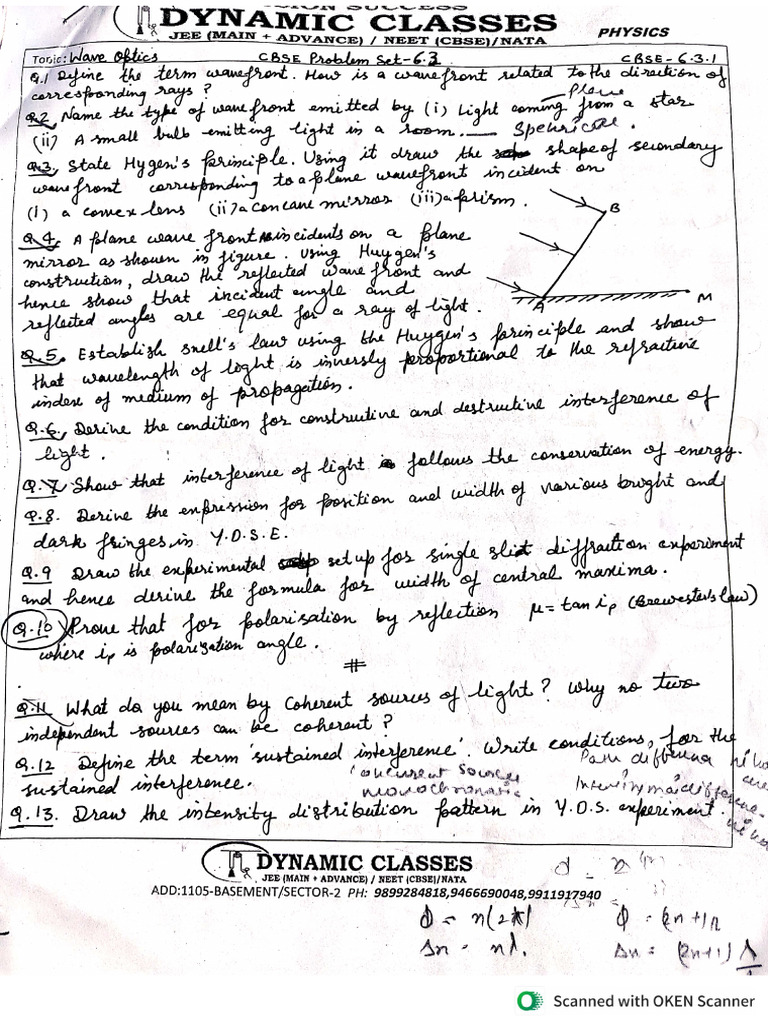 DYNAMIC CLASSES
JEE (MAIN + ADVANCE) / NEET (CBSE)/NATA
PHYSICS
Topic: Wave Optics CBSE Problem Set-6.3 CBSE-6.3.1
Q.1 Define the term wavefront. How is a wavefront related to the direction of
corresponding rays?
Plane
Q.2, Name the type of wavefront emitted by (i) Light coming from a star
(ii) A small bulb emitting light in a room. Spehrical.
Q.3, State Hygen's principle. Using it draw the shape of secondary
wavefront corresponding to a plane wavefront incident on
(i) a convex lens (ii) a concave mirror (iii) a prism.
Q.4, A plane wave front incidents on a plane
mirror as shown in figure. Using Huygen's
construction, draw the reflected wave front and
hence show that incident angle and
reflected angles are equal for a ray of light.
B
A
M
Q.5, Establish snell's law using the Huygen's principle and show
that wavelength of light is inversly proportional to the refractive
index of medium of propagation.
Q.6, Derive the condition for constructive and destructive interference of
light.
Q.7. Show that interference of light follows the conservation of energy.
Q.8. Derive the expression for position and width of various bright and
dark fringes in Y.D.S.E.
Q.9 Draw the experimental set up for single slit diffraction experiment
and hence derive the formula for width of central maxima.
Q.10 Prove that for polarisation by reflection μ = tan ip (Brewster's law)
where ip is polarisation angle.
#
Q.11 What do you mean by Coherent sources of light? Why no two
independent sources can be coherent?
Q.12 Define the term 'sustained interference'. Write conditions, for the
sustained interference.
Path differena
concurrent sources
monochromatic
Q.13. Draw the intensity distribution pattern in Y.D.S. experiment.
DYNAMIC CLASSES
JEE (MAIN + ADVANCE) / NEET (CBSE)/NATA
ADD:1105-BASEMENT/SECTOR-2 PH: 9899284818,9466690048,9911917940
ϕ = n(2π) ϕ = (2n+1)π
Δn = nλ. Δn = (2n+1) λ
Scanned with OKEN Scanner